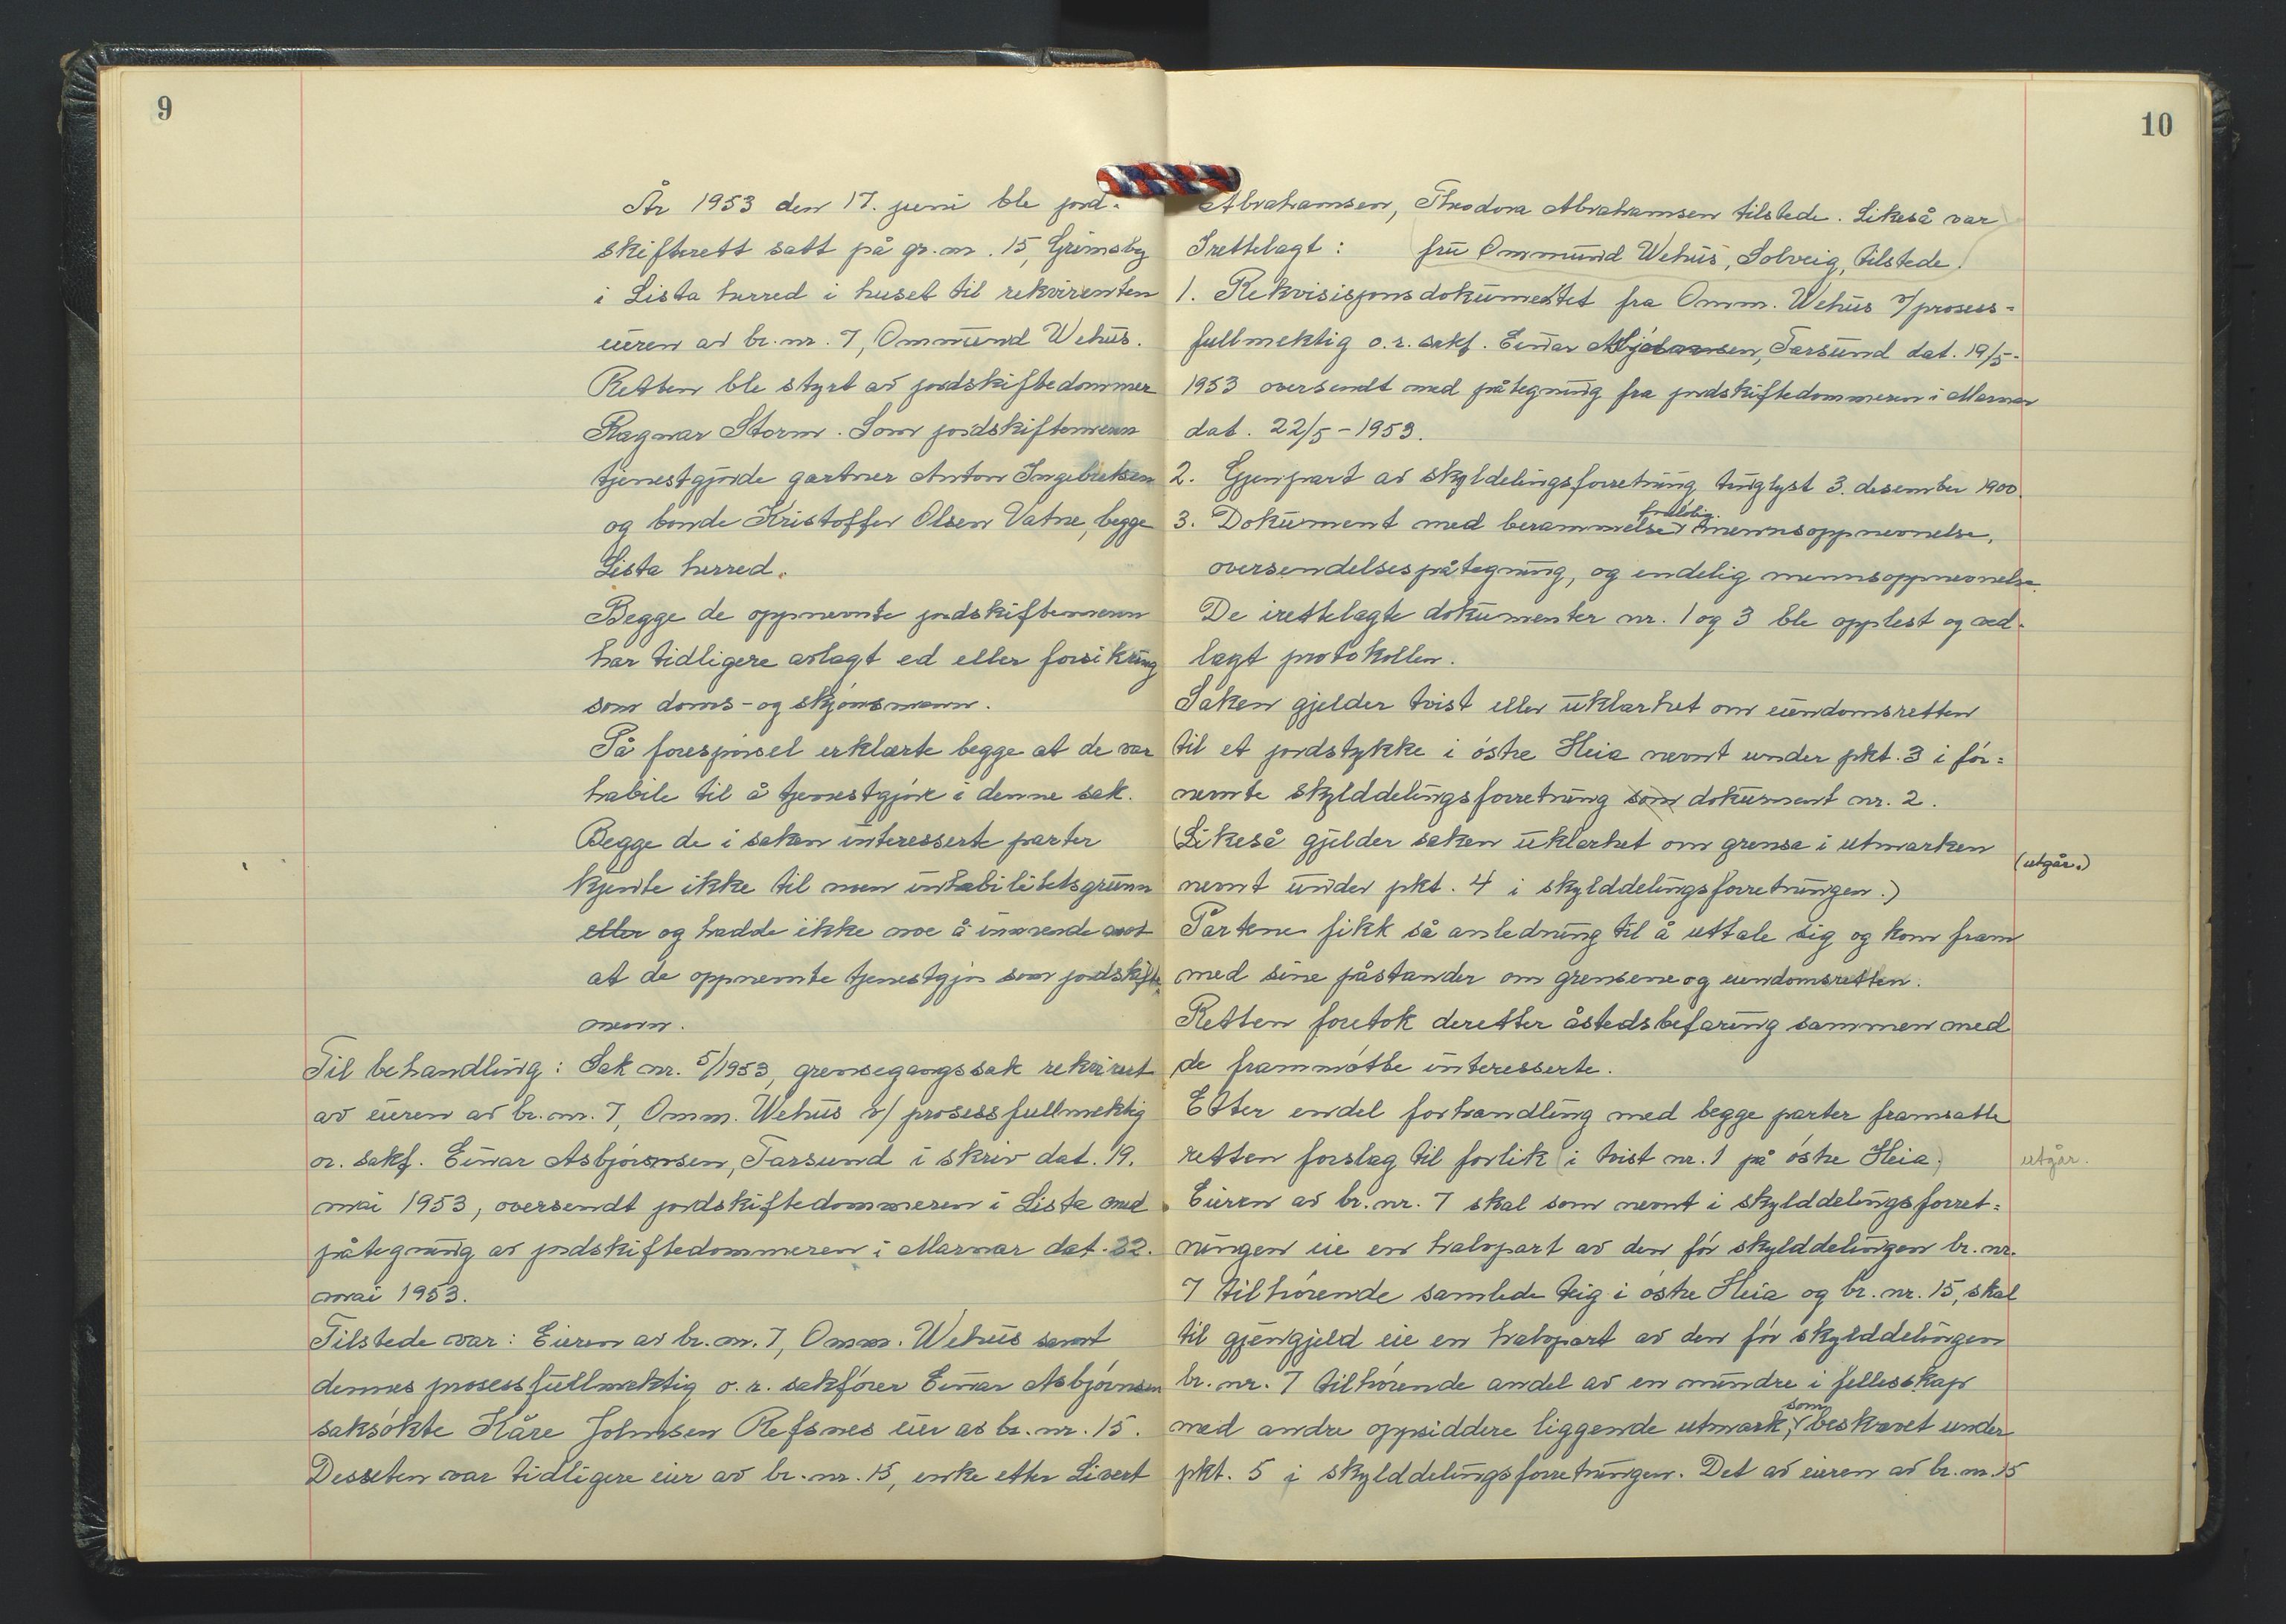 9
År 1953 den 17. juni ble jord-
skifterett satt på gr.nr. 15, Grimsby
i Lista herred i huset til rekvirenten
eieren av br.nr. 7, Ommund Wehus.
Retten ble styrt av jordskiftedommer
Ragnar Storm. Som jordskiftemenn
tjenestgjorde gartner Anton Ingebretsen
og bonde Kristoffer Olsen Vatne, begge
Lista herred.
Begge de oppnevnte jordskiftemenn
har tidligere avlagt ed eller forsikring
som doms- og skjønsmenn.
På forespørsel erklærte begge at de var
habile til å tjenestgjøre i denne sak.
Begge de i saken interesserte parter
kjente ikke til noen inhabilitetsgrunn
eller og hadde ikke noe å innvende mot
at de oppnevnte tjenestgjør som jordskifte-
menn.
Til behandling: Sak nr. 5/1953, grensegangssak rekvirert
av eieren av br.nr. 7, Omm. Wehus v/ prosessfullmektig
o.r. sakf. Einar Asbjørnsen, Farsund i skriv dat. 19.
mai 1953, oversendt jordskiftedommeren i Lista med
påtegning av jordskiftedommeren i Marnar dat. 22.
mai 1953.
Tilstede var: Eieren av br.nr. 7, Omm. Wehus samt
dennes prosessfullmektig o.r. sakfører Einar Asbjørnsen
saksøkte Kåre Johnsen Refsnes eier av br.nr. 15.
Dessuten var tidligere eier av br.nr. 15, enke etter Sivert
10
Abrahamsen, Theodora Abrahamsen tilstede. Likeså var
Irettelagt: fru Ommund Wehus, Solveig, tilstede.
1. Rekvisisjonsdokumentet fra Omm. Wehus v/prosess-
fullmektig o.r. sakf. Einar Asbjørnsen, Farsund dat. 19/5-
1953 oversendt med påtegning fra jordskiftedommeren i Marnar
dat. 22/5-1953.
2. Gjenpart av skyldelingsforretning tinglyst 3. desember 1900.
3. Dokument med berammelse, foreløbig mennsoppnevnelse,
oversendelsespåtegning, og endelig mennsoppnevnelse.
De irettelagte dokumenter nr. 1 og 3 ble opplest og ved-
lagt protokollen.
Saken gjelder tvist eller uklarhet om eiendomsretten
til et jordstykke i østre Heia nevnt under pkt. 3 i før-
nevnte skylddelingsforretning som dokument nr. 2.
(Likeså gjelder saken uklarhet om grensa i utmarken
nevnt under pkt. 4 i skylddelingsforretningen.)
(utgår.)
Partene fikk så anledning til å uttale sig og kom fram
med sine påstander om grensene og eiendomsretten.
Retten foretok deretter åstedsbefaring sammen med
de frammøtte interesserte.
Etter endel forhandling med begge parter framsatte
retten forslag til forlik (i tvist nr. 1 på østre Heia)
utgår.
Eieren av br.nr. 7 skal som nevnt i skylddelingsforret-
ningen eie en halvpart av den før skylddelingen br.nr.
7 tilhørende samlede teig i østre Heia og br.nr. 15, skal
til gjengjeld eie en halvpart av den før skylddelingen
br.nr. 7 tilhørende andel av en mindre i fellesskap
med andre oppsiddere liggende utmark, som beskrevet under
pkt. 5 i skylddelingsforretningen. Det av eieren av br.nr. 15